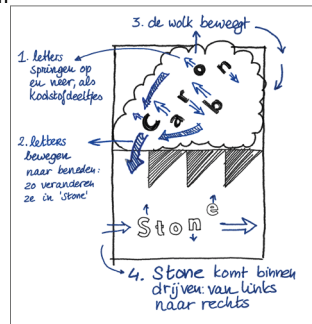 3. de wolk beweegt
1. letters
springen op
en neer, als
koolstofdeeltjes
Carbon
2. letters
bewegen
naar beneden:
zo veranderen
ze in 'stone'
Stone
4. Stone komt binnen
drijven: van links
naar rechts